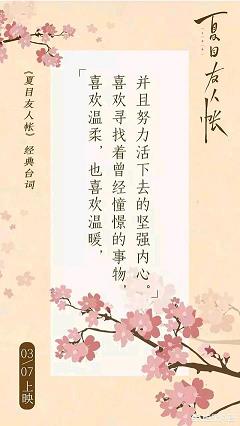 夏目友人帐
《夏目友人帐》经典台词
「喜欢温柔，也喜欢温暖，
喜欢寻找着曾经憧憬的事物，
并且努力活下去的坚强内心。」
03/07上映